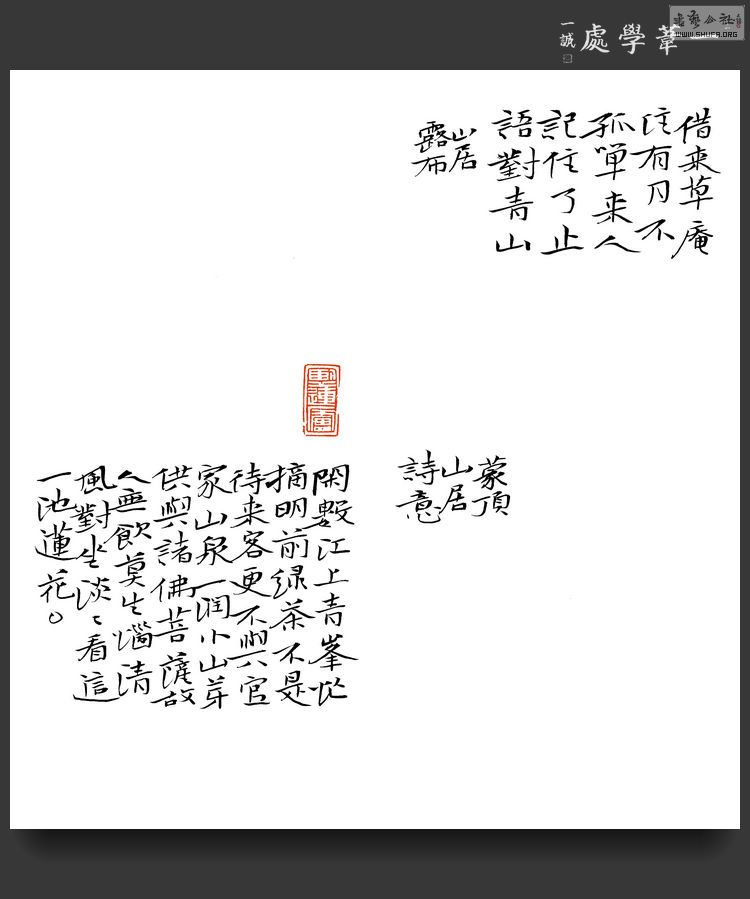 葦學處
一誠
書藝公社
WWW.SHUFA.ORG
借来草庵
住有刀不
孤單来人
記住了止
語對青山
山居
露布
蒙頂
山居
詩意
閑數江上青峯忙
摘明前绿茶不是
待来客更不與官
家山泉一润小山芽
供與諸佛菩薩故
人無飲莫生惱清
風對坐淡淡看這
一池蓮花。